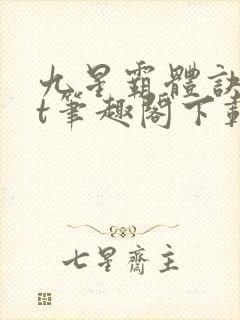 九星霸體訣
t筆趣閣下載
七星齋主